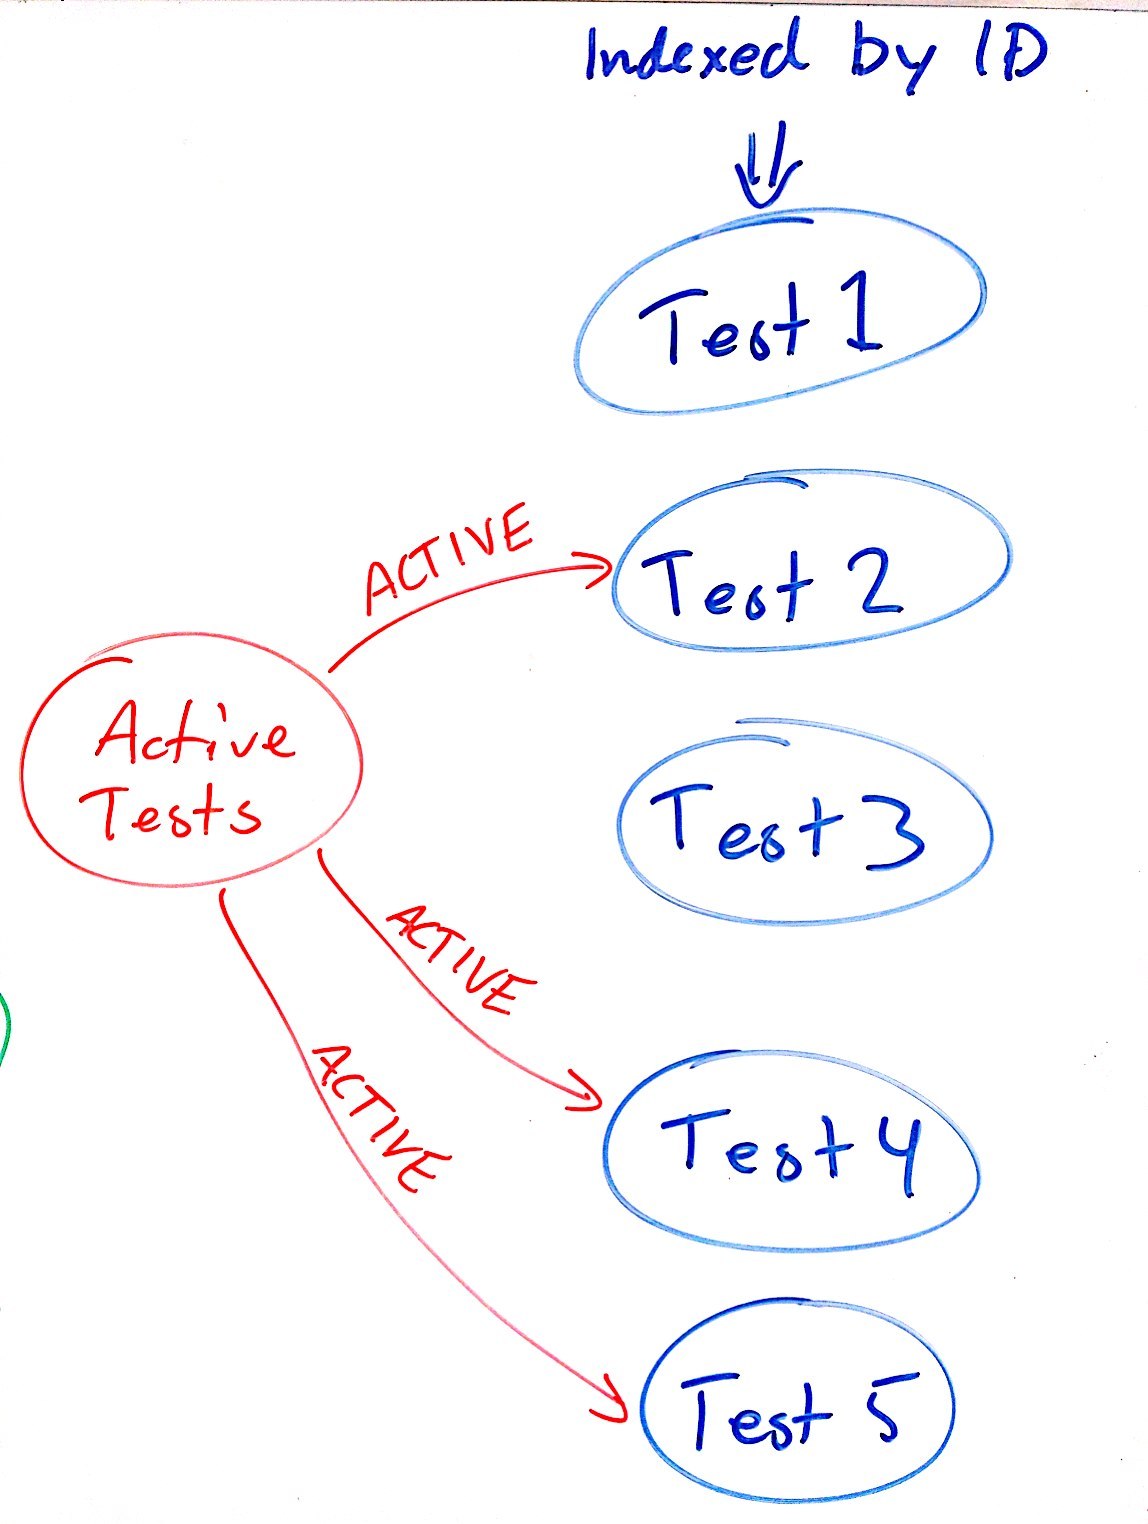 Indexed by ID
Test 1
ACTIVE
Test 2
Active
Tests
Test 3
ACTIVE
ACTIVE
Test 4
Test 5